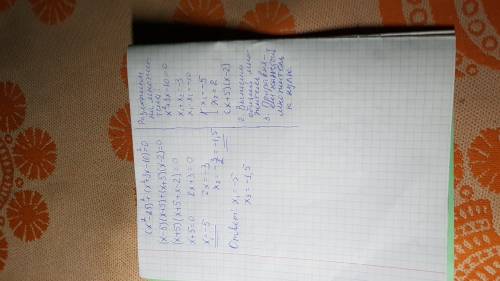 (x² - 25)² + (x² + 3x - 10)² = 0
(x - 5)(x + 5) + (x + 5)(x - 2) = 0
(x + 5)(x + 5 + x - 2) = 0
x + 5 = 0    2x + 3 = 0
x₁ = -5    2x = -3
x₂ = -3/2 = -1,5
Ответ: x₁ = -5
x₂ = -1,5
Разложение
на множи-
тели
x² + 3x - 10 = 0
x₁ + x₂ = -3
x₁ · x₂ = -10
{ x₁ = -5
x₂ = 2
(x + 5)(x - 2)
2. Вынесли
общий мно-
житель
3. Приравня-
ли каждый
множитель
к нулю